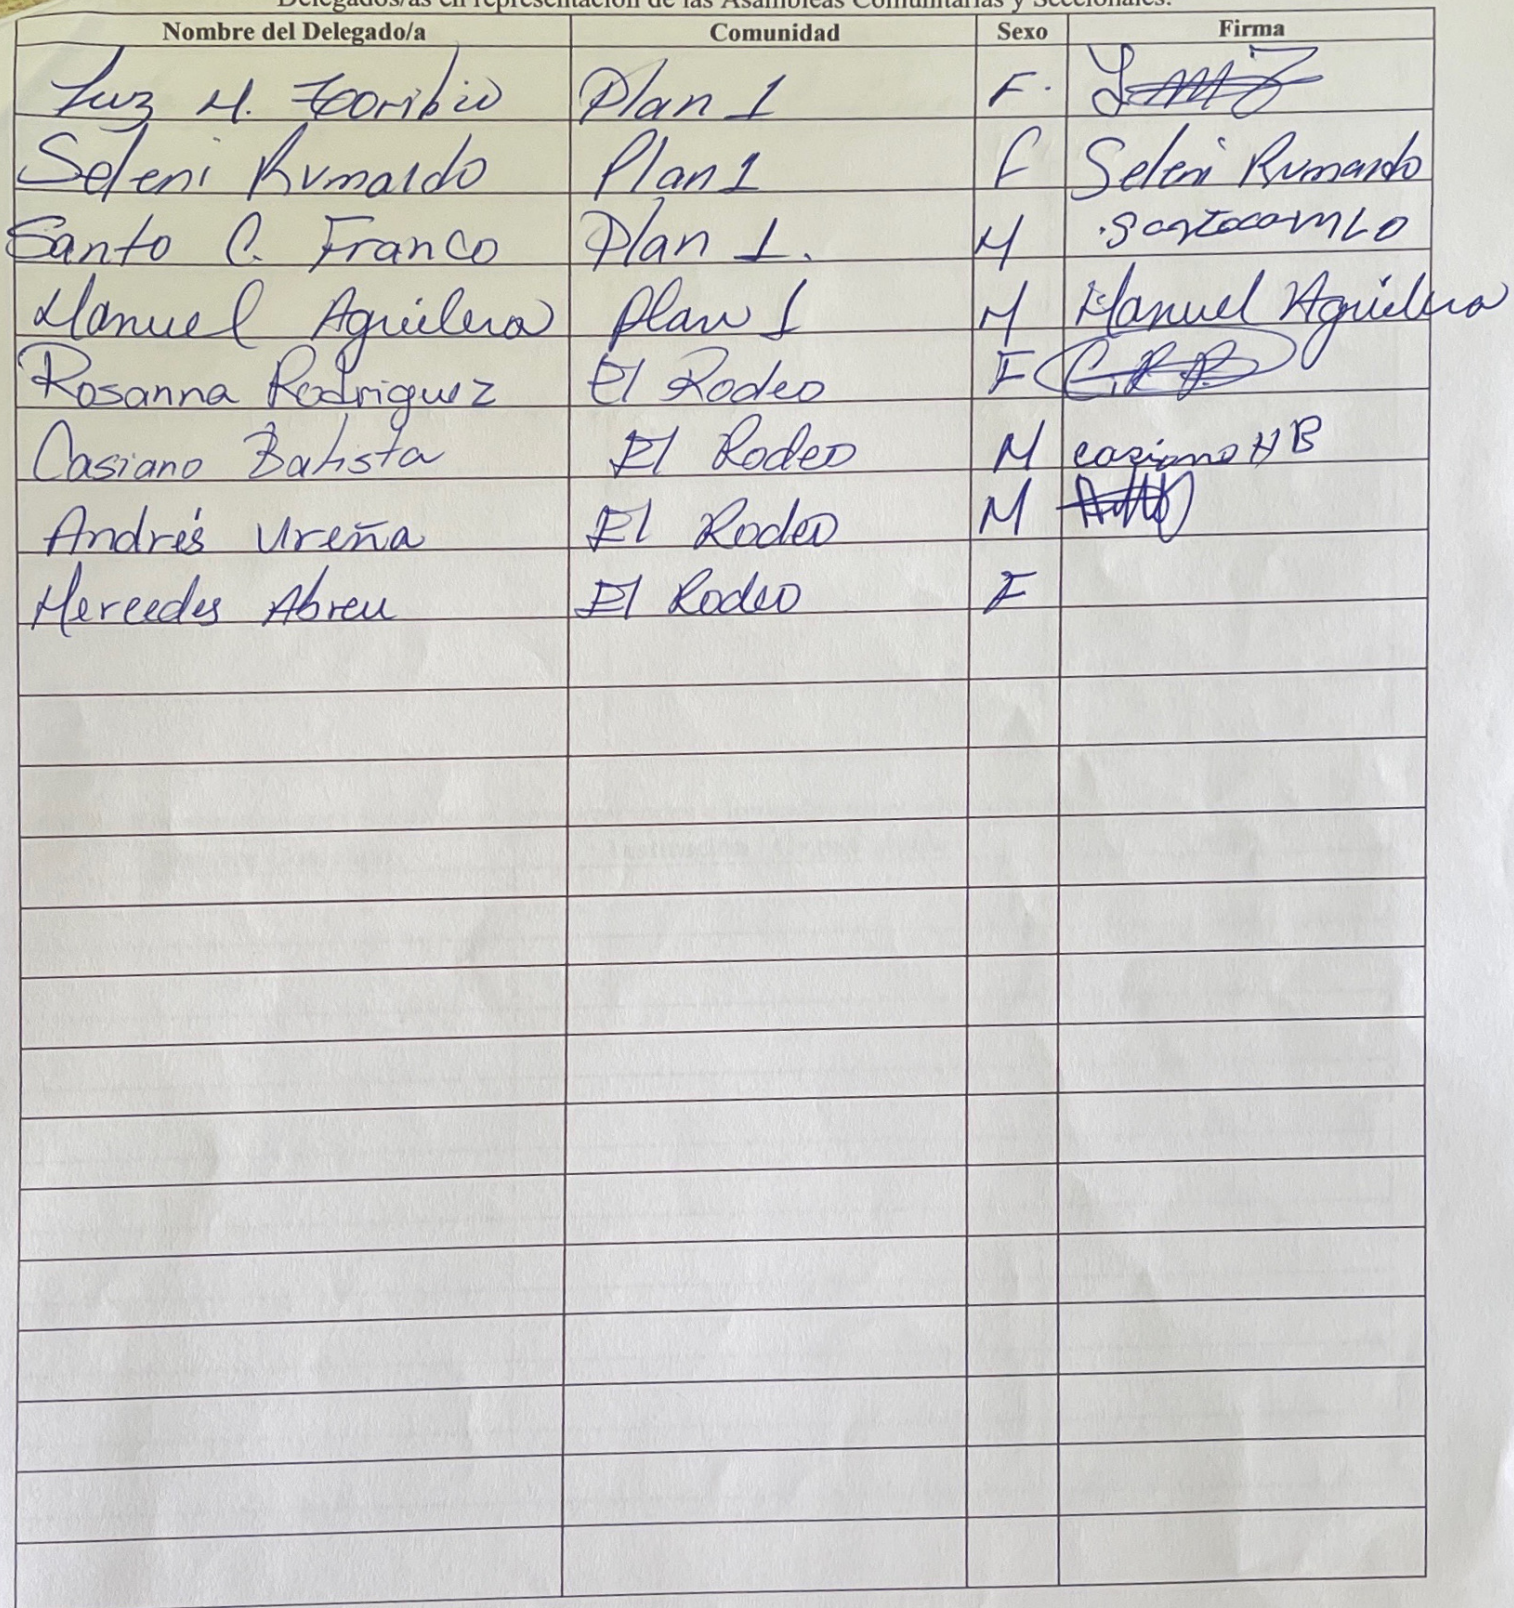 Delegados/as en representación de las Asambleas Comunitarias y Seccionales.
Nombre del Delegado/a Comunidad Sexo Firma
Luz M. Toribio Plan 1 F.
Seleni Rumaldo Plan 1 F Seleni Rumardo
Santo C. Franco Plan 1. M
Manuel Aguilera Plan 1 M Manuel Aguilera
Rosanna Rodriguez El Rodeo F
Casiano Batista El Rodeo M casiano H B
Andrés Ureña El Rodeo M
Mercedes Abreu El Rodeo F